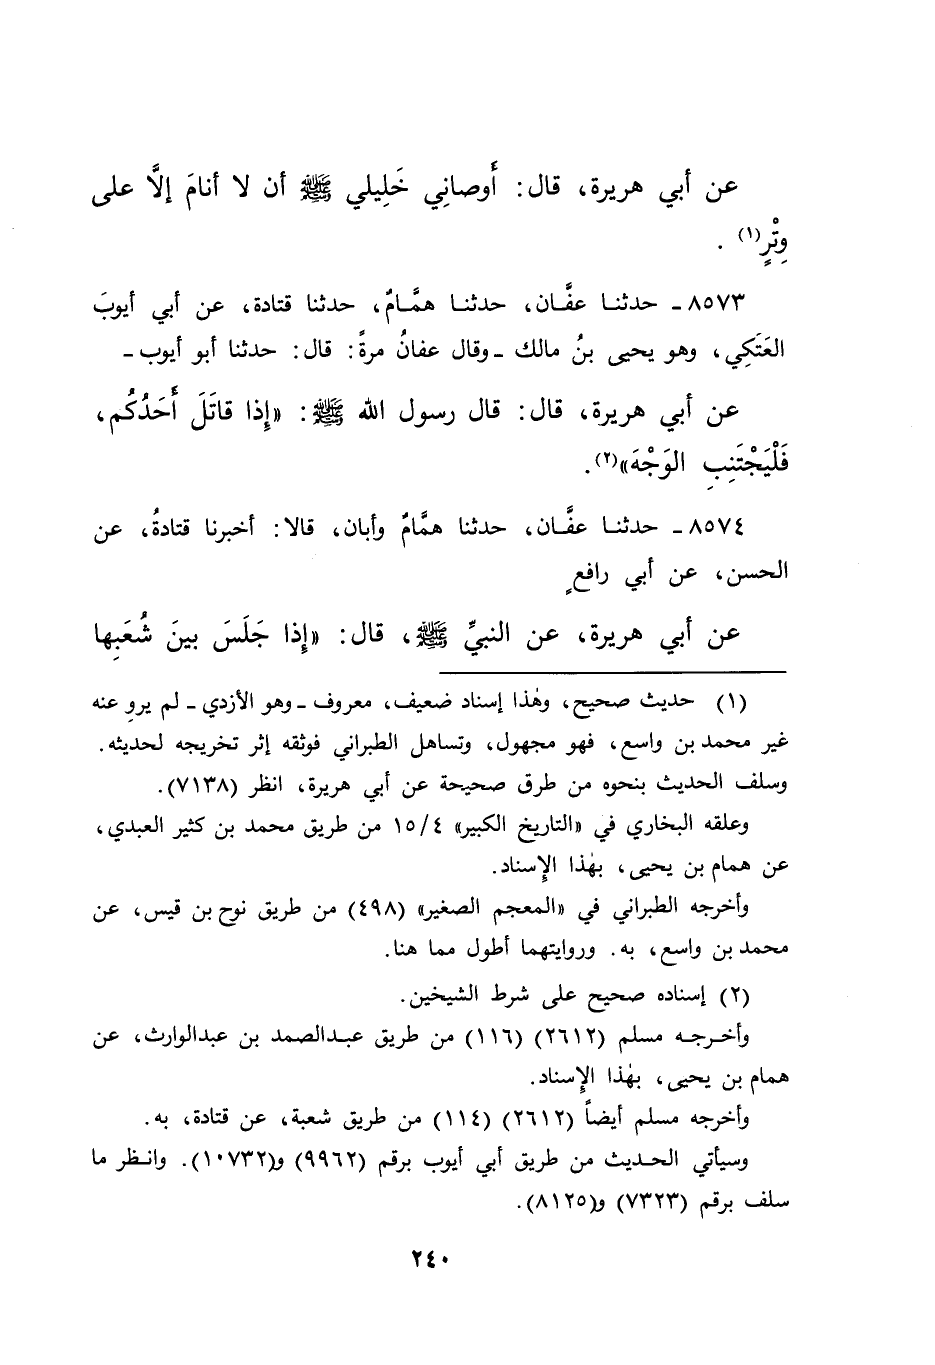 عن أبي هريرة، قال: أَوصانِي خَلِيلي ﷺ أن لا أنامَ إلَّا على
وِتْرٍ(١) .
٨٥٧٣ ـ حدثنـا عفَّـان، حدثنـا همَّـامٌ، حدثنا قتادة، عن أبي أيوبَ
العَتَكِي، وهو يحيى بنُ مالك ـ وقال عفانُ مرةً: قال: حدثنا أبو أيوب ـ
عن أبي هريرة، قال: قال رسول الله ﷺ: «إِذا قاتَلَ أَحَدُكُم،
فَلْيَجْتَنِبِ الوَجْهَ»(٢).
٨٥٧٤ ـ حدثنـا عفَّـان، حدثنا همَّامٌ وأبان، قالا: أخبرنا قتادةُ، عن
الحسن، عن أبي رافعٍ
عن أبي هريرة، عن النبيِّ ﷺ، قال: «إِذا جَلَسَ بينَ شُعَبِها
(١) حديث صحيح، وهٰذا إسناد ضعيف، معروف ـ وهو الأزدي ـ لم يروِ عنه
غير محمد بن واسع، فهو مجهول، وتساهل الطبراني فوثقه إثر تخريجه لحديثه.
وسلف الحديث بنحوه من طرق صحيحة عن أبي هريرة، انظر (٧١٣٨).
وعلقه البخاري في «التاريخ الكبير» ١٥/٤ من طريق محمد بن كثير العبدي،
عن همام بن يحيى، بهٰذا الإِسناد.
وأخرجه الطبراني في «المعجم الصغير» (٤٩٨) من طريق نوح بن قيس، عن
محمد بن واسع، به. وروايتهما أطول مما هنا.
(٢) إسناده صحيح على شرط الشيخين.
وأخـرجـه مسلم (٢٦١٢) (١١٦) من طريق عبـدالصمد بن عبدالوارث، عن
همام بن يحيى، بهٰذا الإِسناد.
وأخرجه مسلم أيضاً (٢٦١٢) (١١٤) من طريق شعبة، عن قتادة، به.
وسيأتي الحـديث من طريق أبي أيوب برقم (٩٩٦٢) و(١٠٧٣٢). وانـظر ما
سلف برقم (٧٣٢٣) و(٨١٢٥).
٢٤٠